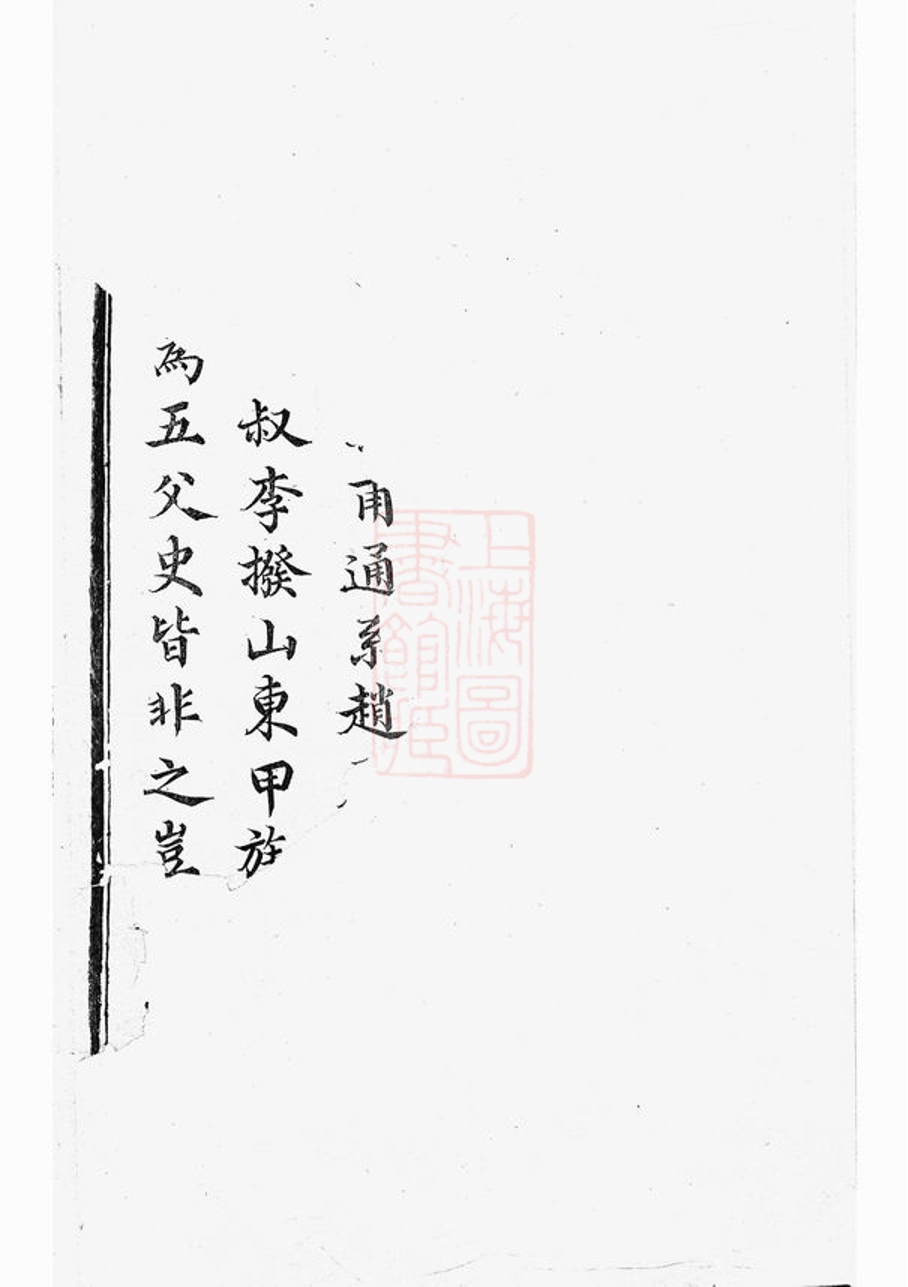 甬通系趙
叔李撥山東甲族
為五父史皆非之豈
上海圖
書館藏